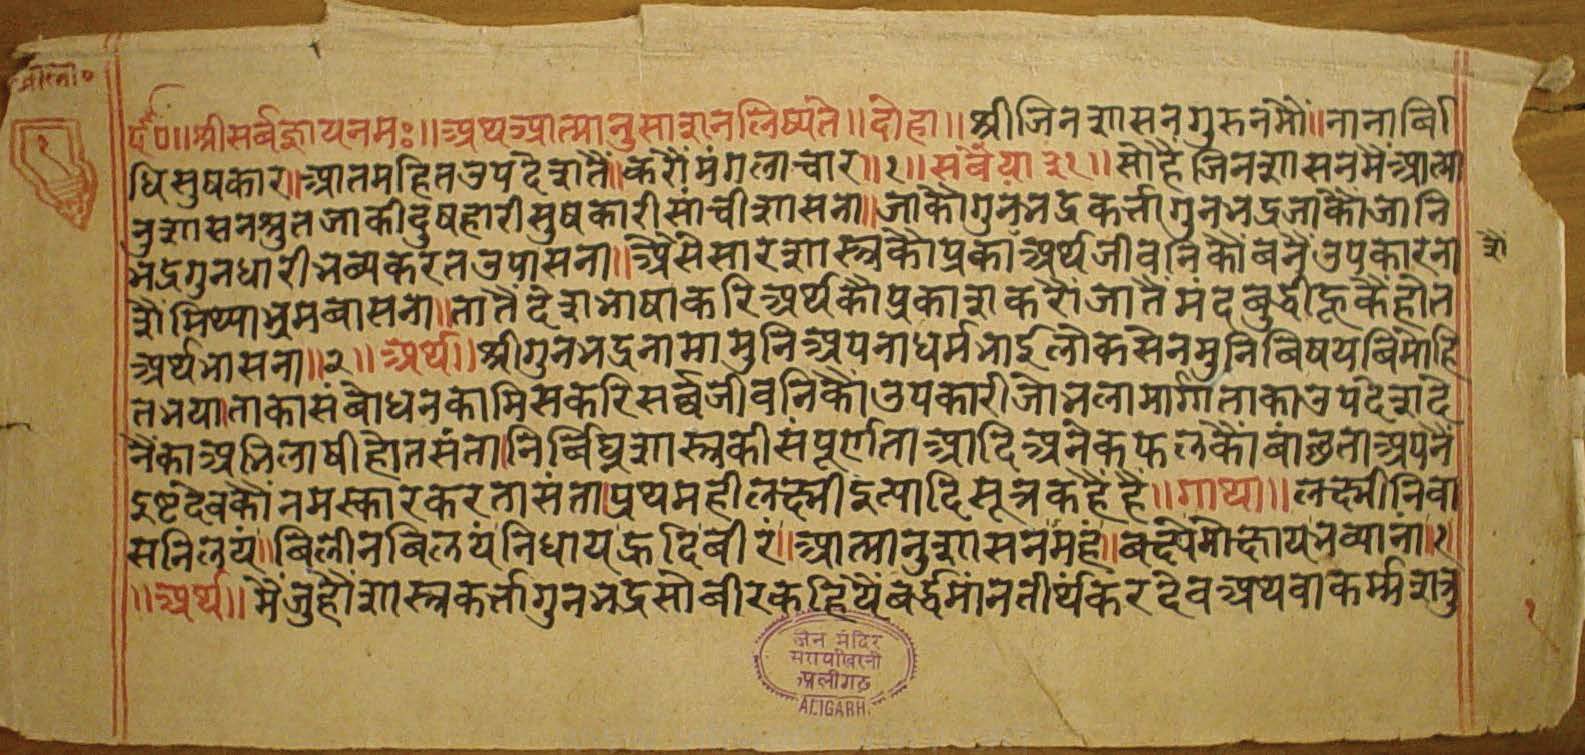 ॥श्रीसर्बज्ञायनमः॥अथआत्मानुसाशनलिष्यते॥दोहा॥श्रीजिनशासनगुरुनमौं॥नानाबि
धिसुषकार॥आतमहितउपदेशतैं॥करौंमंगलाचार॥१॥सवैया३१॥सोहैजिनशासनमैंआत्मा
नुशासनश्रुतजाकीदुषहारीसुषकारीसांचीशासना॥जाकौगुनभद्रकर्त्तागुनभद्रजाकौजानि
भद्रगुनधारीभव्यकरतउपासना॥ऐसेसारशास्त्रकौप्रकांअर्थजीवनिकौंबनैंउपकारना
शैमिथ्याभ्रमबासना॥तातैंदेशभाषाकरिअर्थकौप्रकाशकरौंजातैंमंदबुद्धीहूकैंहोत
अर्थभासना॥२॥अर्थ॥श्रीगुनभद्रनामामुनिअपनाधर्मभाईलोकसेनमुनिबिषयबिमोहि
तभया।ताकासंबोधनकामिसकरिसर्ब्बजीवनिकौंउपकारीजोभलामार्गताकाउपदेशदे
नेंकाअभिलाषीहोतसंता।निर्बिघ्नशास्त्रकीसंपूर्णताआदिअनेकफलकौंबांछताअपनें
इष्टदेवकौंनमस्कारकरतासंता।प्रथमहीलक्ष्मीइत्यादिसूत्रकहैंहैं॥गाथा॥लक्ष्मीनिवा
सनिलयं॥बिलीनबिलयंनिधायहृदिबीरं॥आत्मानुशासनमहं॥बक्ष्येमोक्षायभव्यानां॥१
॥अर्थ॥मैंजुहौंशास्त्रकर्त्तागुनभद्रसोबीरकहियेबर्द्धमानतीर्थंकरदेवअथवाकर्म्मशत्रु
शै
१
१
जैन मंदिर
अलीगढ़
ALIGARH.